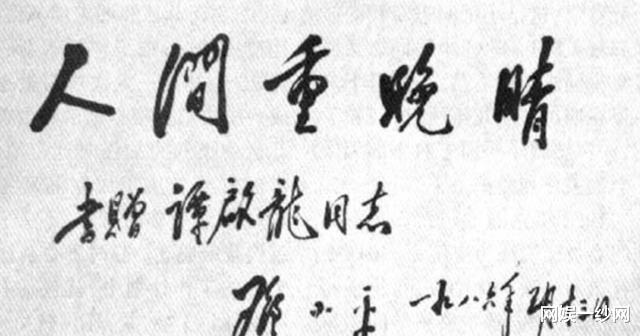 人間重晚晴
書贈 譚啟龍同志
鄧小平 一九八六年
网娱一纱网